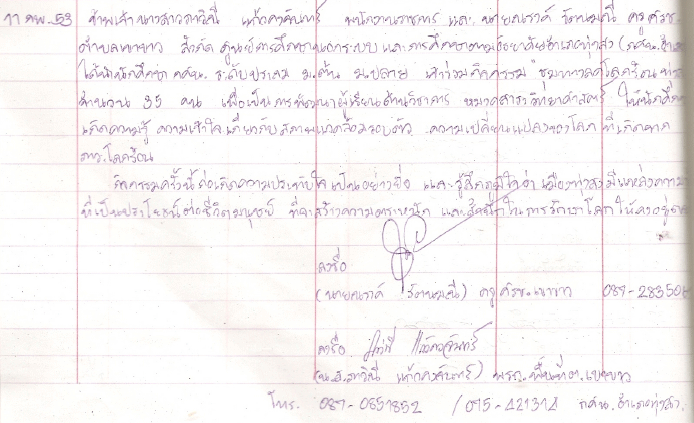 11 กพ. 53 ข้าพเจ้า นางสาวสาวินี แก้วดวงจันทร์ พนักงานราชการ และ นายณรงค์ รัตนมณี ครู ศรช.
ตำบลเขาขาว สังกัด ศูนย์การศึกษานอกระบบ และการศึกษาตามอัธยาศัยอำเภอทุ่งสง (กศน.อำเภอ
ได้นำนักศึกษา กศน. ระดับประถม ม.ต้น ม.ปลาย เข้าร่วมกิจกรรม "ชมภาวะโลกร้อน
จำนวน 35 คน เพื่อเป็นการพัฒนาผู้เรียนด้านวิชาการ หมวดสาระวิทยาศาสตร์ ให้นักศึกษา
เกิดความรู้ ความเข้าใจ เกี่ยวกับสภาพแวดล้อมรอบตัว ความเปลี่ยนแปลงของโลก ที่เกิดจาก
ภาวะโลกร้อน
กิจกรรมครั้งนี้ก่อเกิดความประทับใจเป็นอย่างยิ่ง และรู้สึกภูมิใจว่า เมืองทุ่งสงมีแหล่งความ
ที่เป็นประโยชน์ต่อชีวิตมนุษย์ ที่จะสร้างความตระหนัก และสำนึกในการรักษาโลก ให้คงอยู่
ลงชื่อ
(นายณรงค์ รัตนมณี) ครู ศรช.เขาขาว 089-283506
ลงชื่อ สาวินี แก้วดวงจันทร์
(น.ส.สาวินี แก้วดวงจันทร์) พรก. พื้นที่ต.เขาขาว
โทร. 089-0851852 / 075-421314 กศน.อำเภอทุ่งสง.